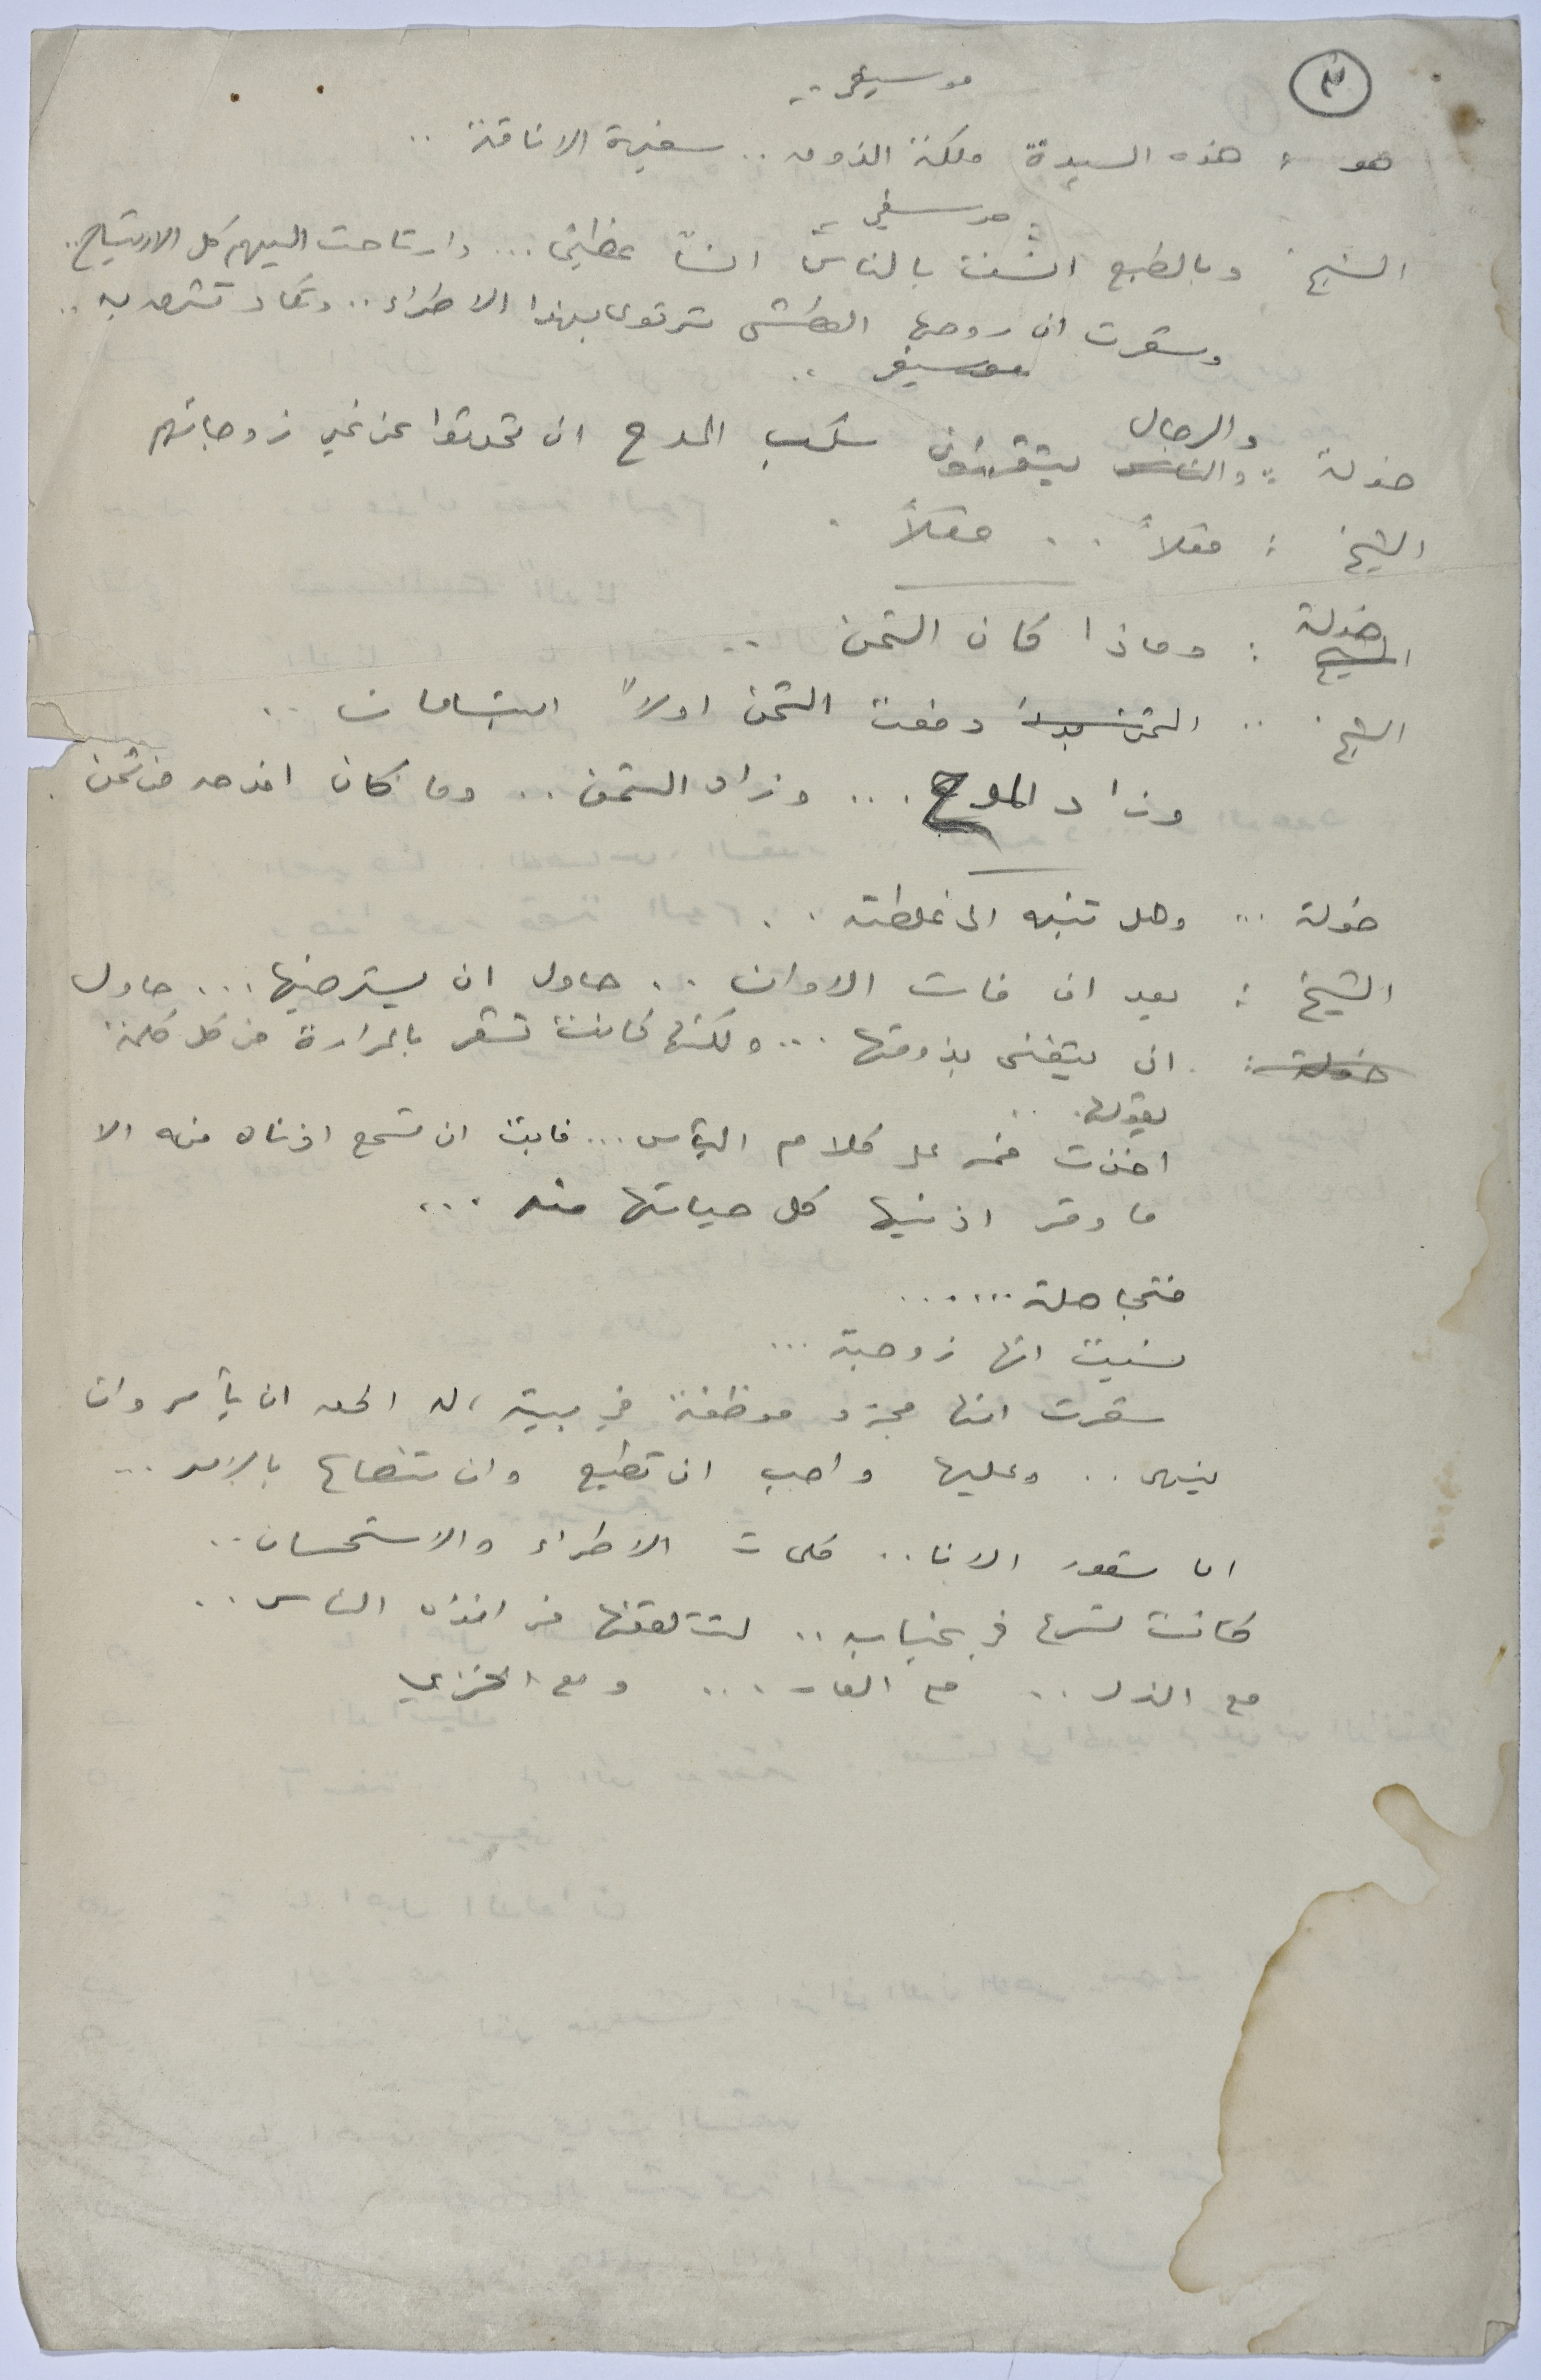 ٣
موسيقى ..
هو : هذه السيدة ملكة الذوق .. سفيرة الاناقة ..
موسيقى
الشيخ وبالطبع انست بالناس انساً عظيماً ... وارتاحت اليهم كل الارتياح ..
وشعرت ان روحها العطشى ترتوى بهذا الاطراء .. وتكاد تشرق به ..
موسيقى ..
والرجال
خولة : والناس يتقنون سكب المدح ان تحدثوا عن غير زوجاتهم
الشيخ : فعلاً .. فعلاً .
خولة
الشيخ : وماذا كان الثمن ..
الشيخ .. الثمن دفعت الثمن اولاً ابتسامات ..
وزاد المدح ... وزاد الثمن .. وما كان افدحه من ثمن .
خولة .. وهل تنبه الى غلطته ..
الشيخ : بعد ان فات الاوان .. حاول ان يسترضيها ... حاول
خولة : ان يتغنى بذوقها ... ولكنها كانت تشعر بالمرارة من كل كلمة
يقولها ..
اخذت خمر على كلام الناس ... فابت ان تسمع اذناه منه الا
ما وقر اذنيها كل حياتها منه ...
فتجاهلته ......
نسيت انها زوجته ...
شعرت انها مجرد موظفة في بيته ، له الحق ان يأمر وان
ينهى .. وعليها واجب ان تطيع وان تنصاع بالامر ...
اما شعور الانا .. كلمات الاطراء والاستحسان ..
كانت تسرع في غيابه .. لتتلقفها من افواه الناس ..
مع الذل .. مع العار ... ومع الخزي